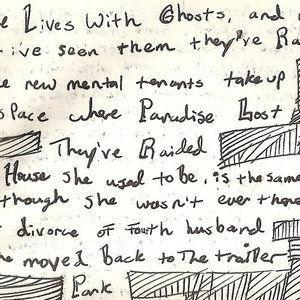 e Lives With Ghosts, and
ive seen them they're Ra
e new mental tenants take up
space where Paradise Lost
They've Raided
House she used to be, is the same
though she wasn't ever there
divorce of fourth husband
he moved Back to The trailer
Park